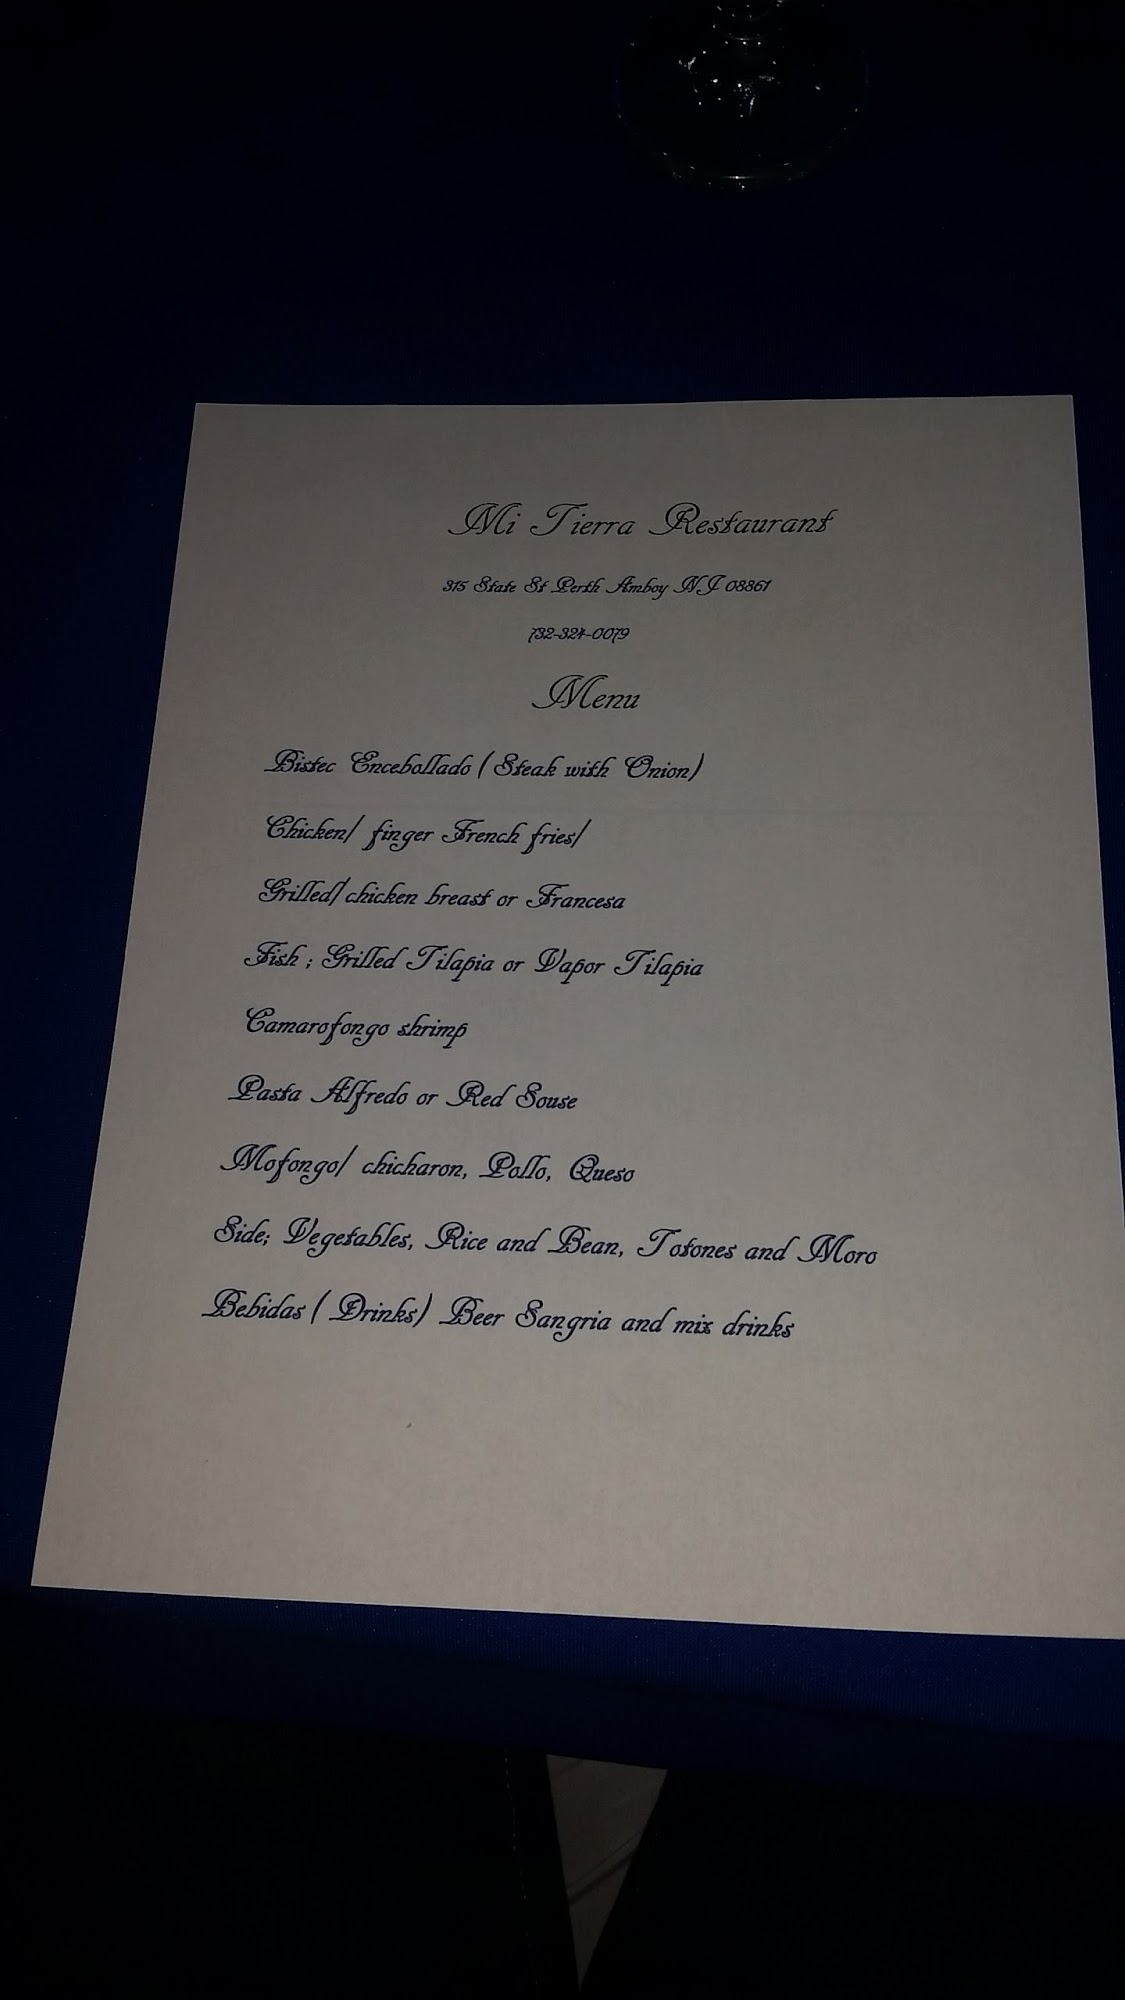 Mi Tierra Restaurant
315 State St Perth Amboy NJ 08861
732-324-0079
Menu
Bistec Encebollado ( Steak with Onion)
Chicken/ finger French fries/
Grilled/chicken breast or Francesa
Fish ; Grilled Tilapia or Vapor Tilapia
Camarofongo shrimp
Pasta Alfredo or Red Souse
Mofongo/ chicharon, Pollo, Queso
Side; Vegetables, Rice and Bean, Totones and Moro
Bebidas ( Drinks) Beer Sangria and mix drinks